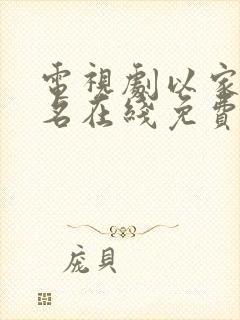 電視劇以家
名在綫免費
庞貝